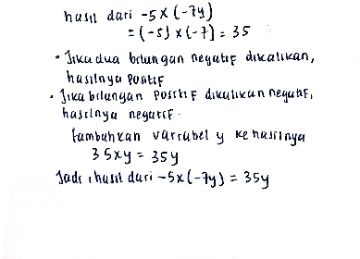 hasil dari -5 x (-7y)
= (-5) x (-7) = 35
• Jika dua bilangan negatif dikalikan,
hasilnya positif
• Jika bilangan positif dikalikan negatif,
hasilnya negatif.
tambahkan variabel y ke hasilnya
35xy = 35y
Jadi, hasil dari -5x(-7y) = 35y